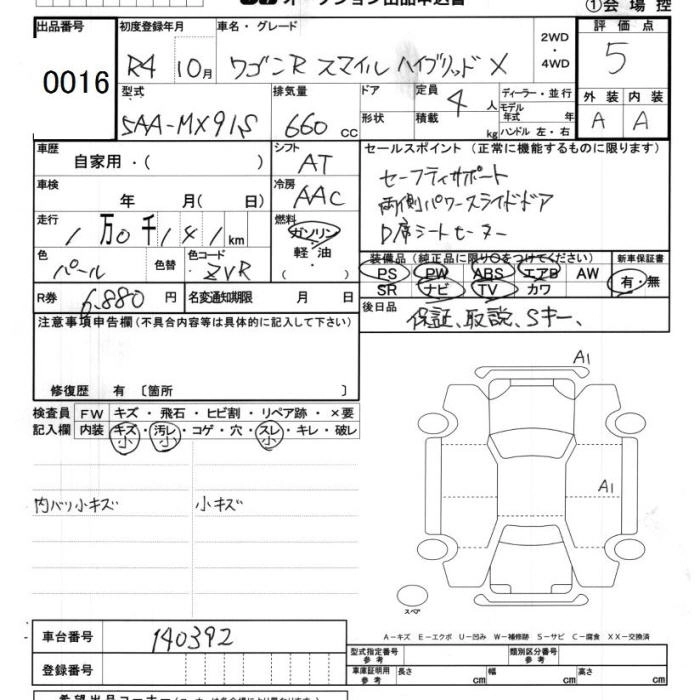 オークション出品申込書
①会場控
出品番号
0016
初度登録年月
R4 10月
車名・グレード
ワゴンR スマイル ハイブリッド X
2WD
・
4WD
評価点
5
外装 内装
A A
型式
5AA-MX91S
排気量
660 cc
ドア
形状
定員 4 人
積載 kg
ディーラー・並行
モデル年式 年
ハンドル 左・右
車歴
自家用・( )
シフト
AT
車検
年 月( 日)
冷房
AAC
走行
1万0千141km
燃料
ガソリン
軽油
( ・ )
色
パール
色替
色コード
ZVR
R券 6,880 円
名変通知期限 月 日
セールスポイント(正常に機能するものに限ります)
セーフティサポート
両側パワースライドドア
D席シートヒーター
装備品(純正品に限り○をつけてください)
PS PW ABS エアB AW
SR ナビ TV カワ
新車保証書
有・無
後日品
保証、取説、Sキー、
注意事項申告欄(不具合内容等は具体的に記入して下さい)
修復歴 有 〔箇所 〕
検査員記入欄
FW キズ・飛石・ヒビ割・リペア跡・×要
内装 キズ・汚レ・コゲ・穴・スレ・キレ・破レ
小 小 小
内バリ小キズ
小キズ
A1
A1
スペア
A-キズ E-エクボ U-凹み W-補修跡 S-サビ C-腐食 XX-交換済
車台番号
140392
登録番号
型式指定番号
参考
類別区分番号
参考
車庫証明用
参考
長さ cm
幅 cm
高さ cm
希望出品コーナー